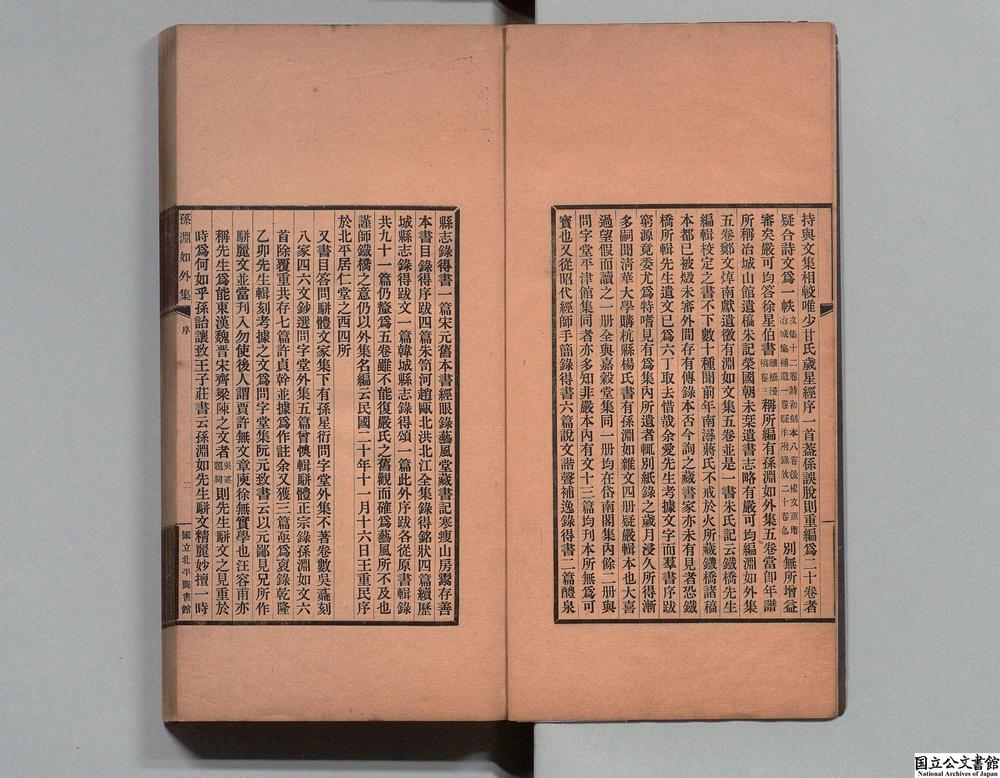 持與文集相較唯少甘氏歲星經序一首蓋係誤脫則重編爲二十卷者
疑合詩文爲一帙 別無所增益
審矣嚴可均答徐星伯書 稱所編有孫淵如外集五卷當卽年譜
所稱冶城山館遺稿朱記榮國朝未栞遺書志略有嚴可均編淵如外集
五卷鄭文焯南獻遺徵有淵如文集五卷並是一書朱氏記云鐵橋先生
編輯校定之書不下數十種聞前年南潯蔣氏不戒於火所藏鐵橋諸稿
本都已被燬未審外間存有傳錄本否今詢之藏書家亦未有見者恐鐵
橋所輯先生遺文已爲六丁取去惜哉余愛先生考據文字而羣書序跋
窮源竟委尤爲特嗜見有爲集內所遺者輒別紙錄之歲月浸久所得漸
多嗣聞清華大學購杭縣楊氏書有孫淵如雜文四册疑嚴輯本也大喜
過望假而讀之一册全與嘉穀堂集同一册均在岱南閣集內餘二册與
問字堂平津館集同者亦多知非嚴本內有文十三篇均刊本所無爲可
寶也又從昭代經師手簡錄得書六篇說文諧聲補逸錄得書二篇醴泉
縣志錄得書一篇宋元舊本書經眼錄藝風堂藏書記寒瘦山房鬻存善
本書目錄得序跋四篇朱笥河趙甌北洪北江全集錄得銘狀四篇續歷
城縣志錄得跋文一篇韓城縣志錄得頌一篇此外序跋各從原書輯錄
共九十一篇仍釐爲五卷雖不能復嚴氏之舊觀而確爲藝風所不及也
謹師鐵橋之意仍以外集名編云民國二十年十一月十六日王重民序
於北平居仁堂之西四所
又書目答問駢體文家集下有孫星衍問字堂外集不著卷數吳鼒刻
八家四六文鈔選問字堂外集五篇曾燠輯駢體正宗錄孫淵如文六
首除覆重共存七篇許貞幹並據爲作註余又獲三篇亟爲裒錄乾隆
乙卯先生輯刻考據之文爲問字堂集阮元致書云以元鄙見兄所作
駢麗文並當刊入勿使後人謂賈許無文章庾徐無實學也汪容甫亦
稱先生爲能東漢魏晉宋齊梁陳之文者 則先生駢文之見重於
時爲何如乎孫詒讓致王子莊書云孫淵如先生駢文精麗妙擅一時
孫淵如外集 序 二 國立北平圖書館
国立公文書館
National Archives of Japan